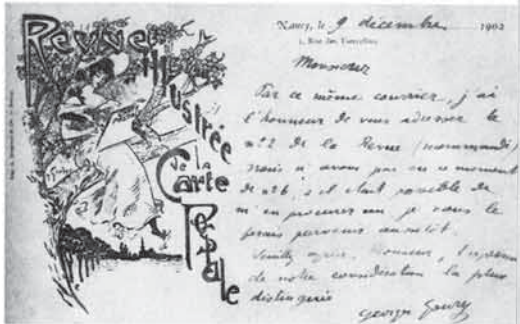 Revue
Illustrée
de la
Carte
Postale
Nancy, le 9 décembre 1902
1, Rue des
Monsieur
Par ce même courrier, j'ai
l'honneur de vous adresser le
n° 2 de la Revue (recommandé)
nous n'avons pas en ce moment
de n° 6, s'il était possible de
m'en procurer un je vous le
ferais parvenir aussitôt.
Veuillez agréer, Monsieur, l'
de notre considération la plus
distinguée
Georges Goury